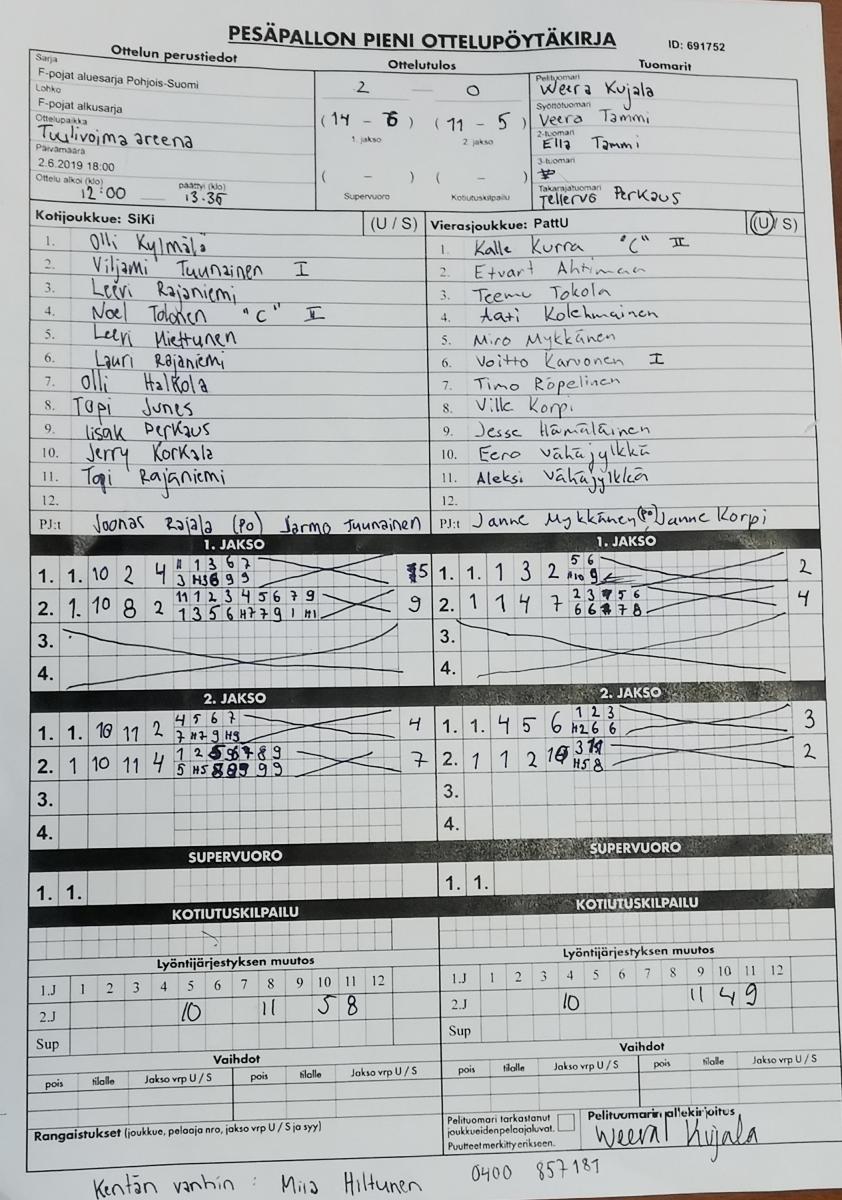 PESÄPALLON PIENI OTTELUPÖYTÄKIRJA
ID: 691752
Ottelun perustiedot
Ottelutulos
Tuomarit
Sarja
F-pojat aluesarja Pohjois-Suomi
Lohko
F-pojat alkusarja
Ottelupaikka
Tuulivoima areena
Päivämäärä
2.6.2019 18:00
Ottelu alkoi (klo) päättyi (klo)
12:00 13.36
2 — 0
(14 - 6) (11 - 5)
1. jakso 2. jakso
( - ) ( - )
Supervuoro Kotiutuskilpailu
Pelituomari
Weera Kujala
Syöttötuomari
Veera Tammi
2-tuomari
Ella Tammi
3-tuomari
Takarajatuomari
Tellervo Perkaus
Kotijoukkue: SiKi (U / S)
1. Olli Kylmälä
2. Viljami Tuunainen I
3. Leevi Rajaniemi
4. Noel Tolonen "C" II
5. Leevi Miettunen
6. Lauri Rajaniemi
7. Olli Halkola
8. Topi Junes
9. Iisak Perkaus
10. Jerry Korkala
11. Topi Rajaniemi
12.
PJ:t Joonas Rajala (po) Jarmo Tuunainen
Vierasjoukkue: PattU (U / S)
1. Kalle Kurra "C" II
2. Etvart Ahtimaa
3. Teemu Tokola
4. Aati Kolehmainen
5. Miro Mykkänen
6. Voitto Karvonen I
7. Timo Röpelinen
8. Ville Korpi
9. Jesse Hämäläinen
10. Eero Vähäjylkkä
11. Aleksi Vähäjylkkä
12.
PJ:t Janne Mykkänen (po) Janne Korpi
1. JAKSO
1. 1. 10 2 4 11 1 3 6 7 5
3 H3 6 9 9
2. 1. 10 8 2 11 1 2 3 4 5 6 7 9 9
1 3 5 6 H7 7 9 1 H1
3.
4.
1. JAKSO
1. 1. 1 3 2 5 6 2
H10 9
2. 1 1 4 7 2 3 5 6 4
6 6 7 8
3.
4.
2. JAKSO
1. 1. 10 11 2 4 5 6 7 4
7 H7 9 H9
2. 1 10 11 4 1 2 7 8 9 7
5 H5 9 9
3.
4.
2. JAKSO
1. 1. 4 5 6 1 2 3 3
H2 6 6
2. 1 1 2 3 11 2
H5 8
3.
4.
SUPERVUORO
1. 1.
SUPERVUORO
1. 1.
KOTIUTUSKILPAILU
KOTIUTUSKILPAILU
Lyöntijärjestyksen muutos
1.J 1 2 3 4 5 6 7 8 9 10 11 12
2.J 10 11 5 8
Sup
Lyöntijärjestyksen muutos
1.J 1 2 3 4 5 6 7 8 9 10 11 12
2.J 10 11 4 9
Sup
Vaihdot
pois tilalle Jakso vrp U / S pois tilalle Jakso vrp U / S
Vaihdot
pois tilalle Jakso vrp U / S pois tilalle Jakso vrp U / S
Rangaistukset (joukkue, pelaaja nro, jakso vrp U / S ja syy)
Pelituomari tarkastanut
joukkueidenpelaajaluvat.
Puutteet merkitty erikseen.
Pelituomarin allekirjoitus
Weera Kujala
Kentän vanhin : Miia Hiltunen 0400 857181